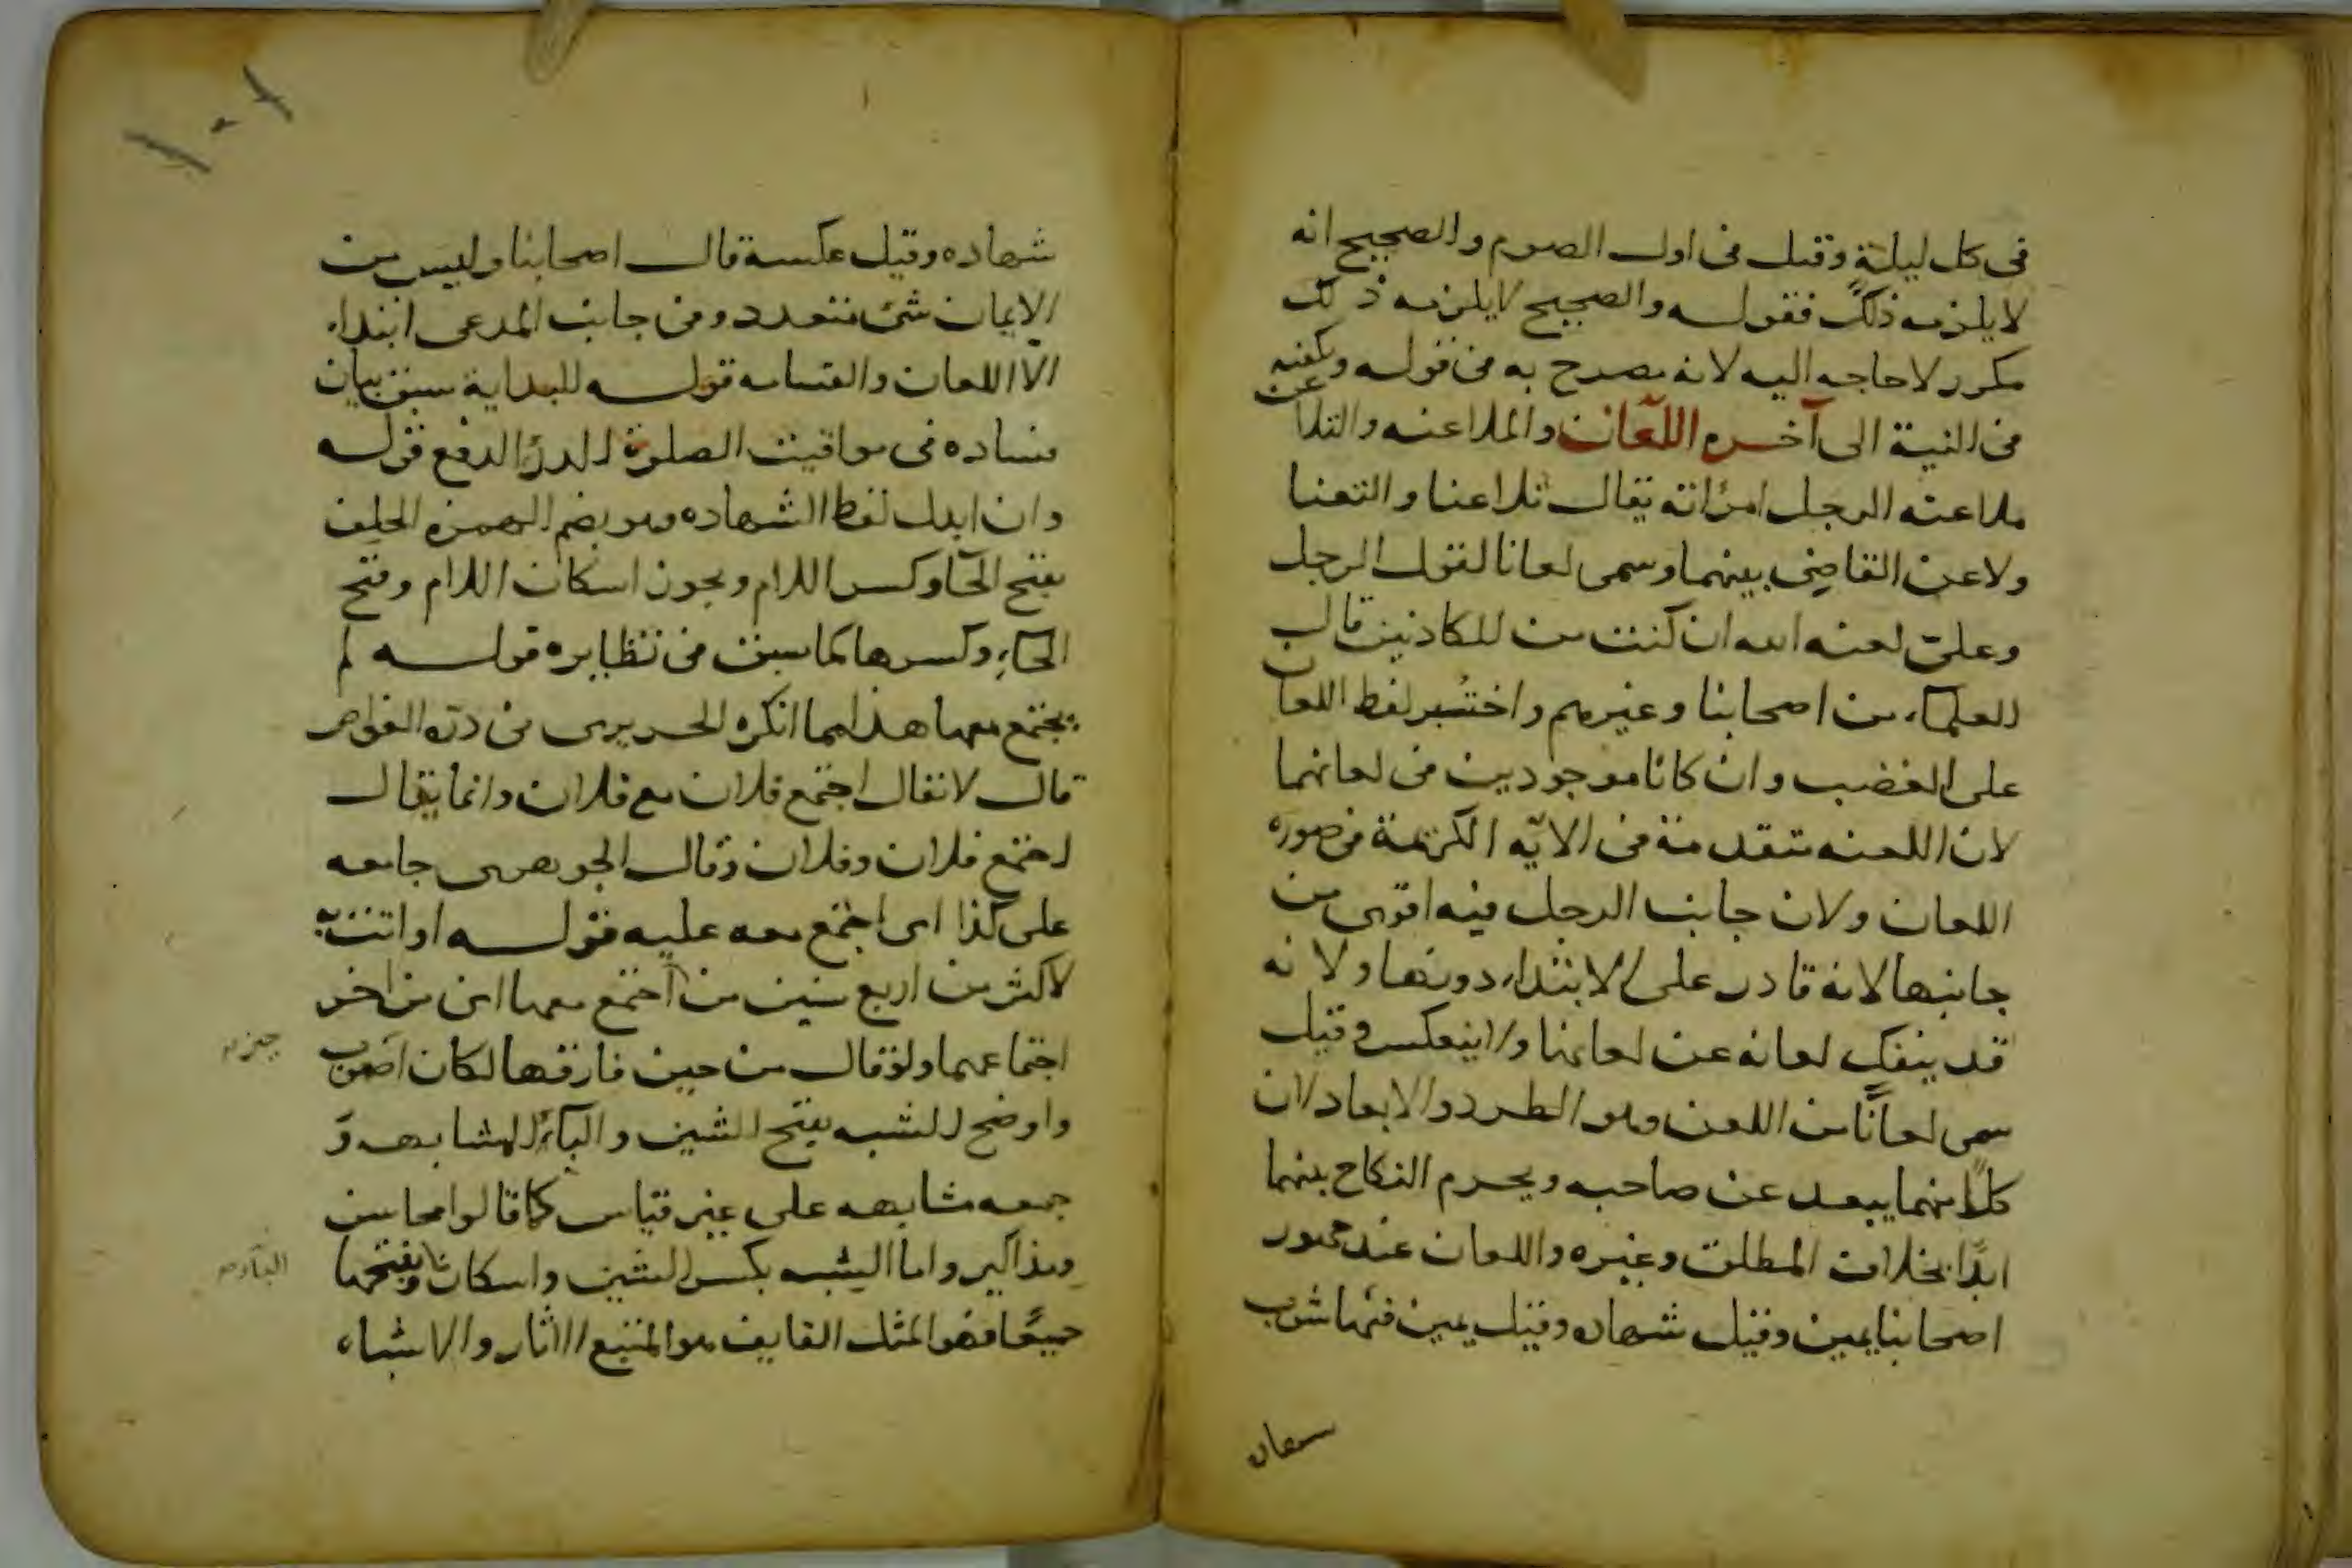 فى كل ليلة وقيل فى اول الصوم والصحيح انه
لا يلزمه ذلك فقوله والصحيح لا يلزمه ذلك
مكرر لا حاجه اليه لانه يصرح به فى قوله ويكفيه
فى النية الى آخره اللعان والملاعنه والتلاعن
ملاعنه الرجل امرأته يقال تلاعنا والتعنا
ولاعن القاضى بينهما وسمى لعانا لقول الرجل
وعلىّ لعنه الله ان كنت من الكاذبين قال
العلماء من اصحابنا وغيرهم واختير لفظ اللعان
على الغضب وان كانا موجودين فى لعانهما
لان اللعنه متقدمة فى الايّه الكريمة فى صوره
اللعان ولان جانب الرجل فيه اقوى من
جانبها لانه قادر على الابتداء دونها ولانه
قد ينفك لعانه عن لعانها ولا ينعكس وقيل
سمى لعانًا من اللعن وهو الطرد والابعاد لان
كلاً منهما يبعد عن صاحبه ويحرم النكاح بينهما
ابدًا بخلاف المطلق وغيره واللعان عند جمهور
اصحابنا يمين وقيل شهاده وقيل يمين فيها شوب
شهاده
١٠١
شهاده وقيل عكسه قال اصحابنا وليس من
الايمان شئ متعدد وفى جانب المدعى ابتداء
الا اللعان والقسامه قوله للبداية سبق بيان
فساده فى مواقيت الصلوة الدرؤ الدفع قوله
وان ابدل لفظ الشهاده وهو بضم الهمزه الحلف
بفتح الحآ وكسر اللام ويجوز اسكان اللام وفتح
الحاء وكسرها كما سبق فى نظايره قوله لم
يجتمع معها هذا مما انكره الحريرى فى درّه الغواص
قال لا تقال اجتمع فلان مع فلان وانما يقال
اجتمع فلان وفلان وقال الجوهرى جامعه
على كذا اى اجتمع معه عليه قوله او اتت به
لاكثر من اربع سنين من آجتمع معها اى من آخر
اجتماعهما ولو قال من حين فارقها لكان اصوب
واوضح الشبه بفتح الشين والبآء المشابهه و
جمعه مشابهه على غير قياس كما قالوا محاسن
ومذاكير واما الشبه بكسر الشين واسكان وبفتحها
جميعًا فهو المثل القايف هو المتتبع الاثار والاشباه